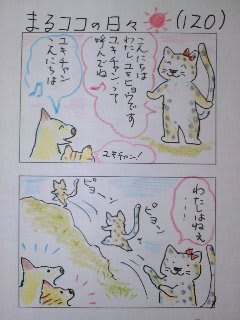 まるココの日々 (120)
こんにちは
わたしユキヒョウです
ユキチャンって
呼んでね
ユキチャン
こんにちは
ユキチャン!
わたしはねぇ
・・・!
ピョーン
ピョーン